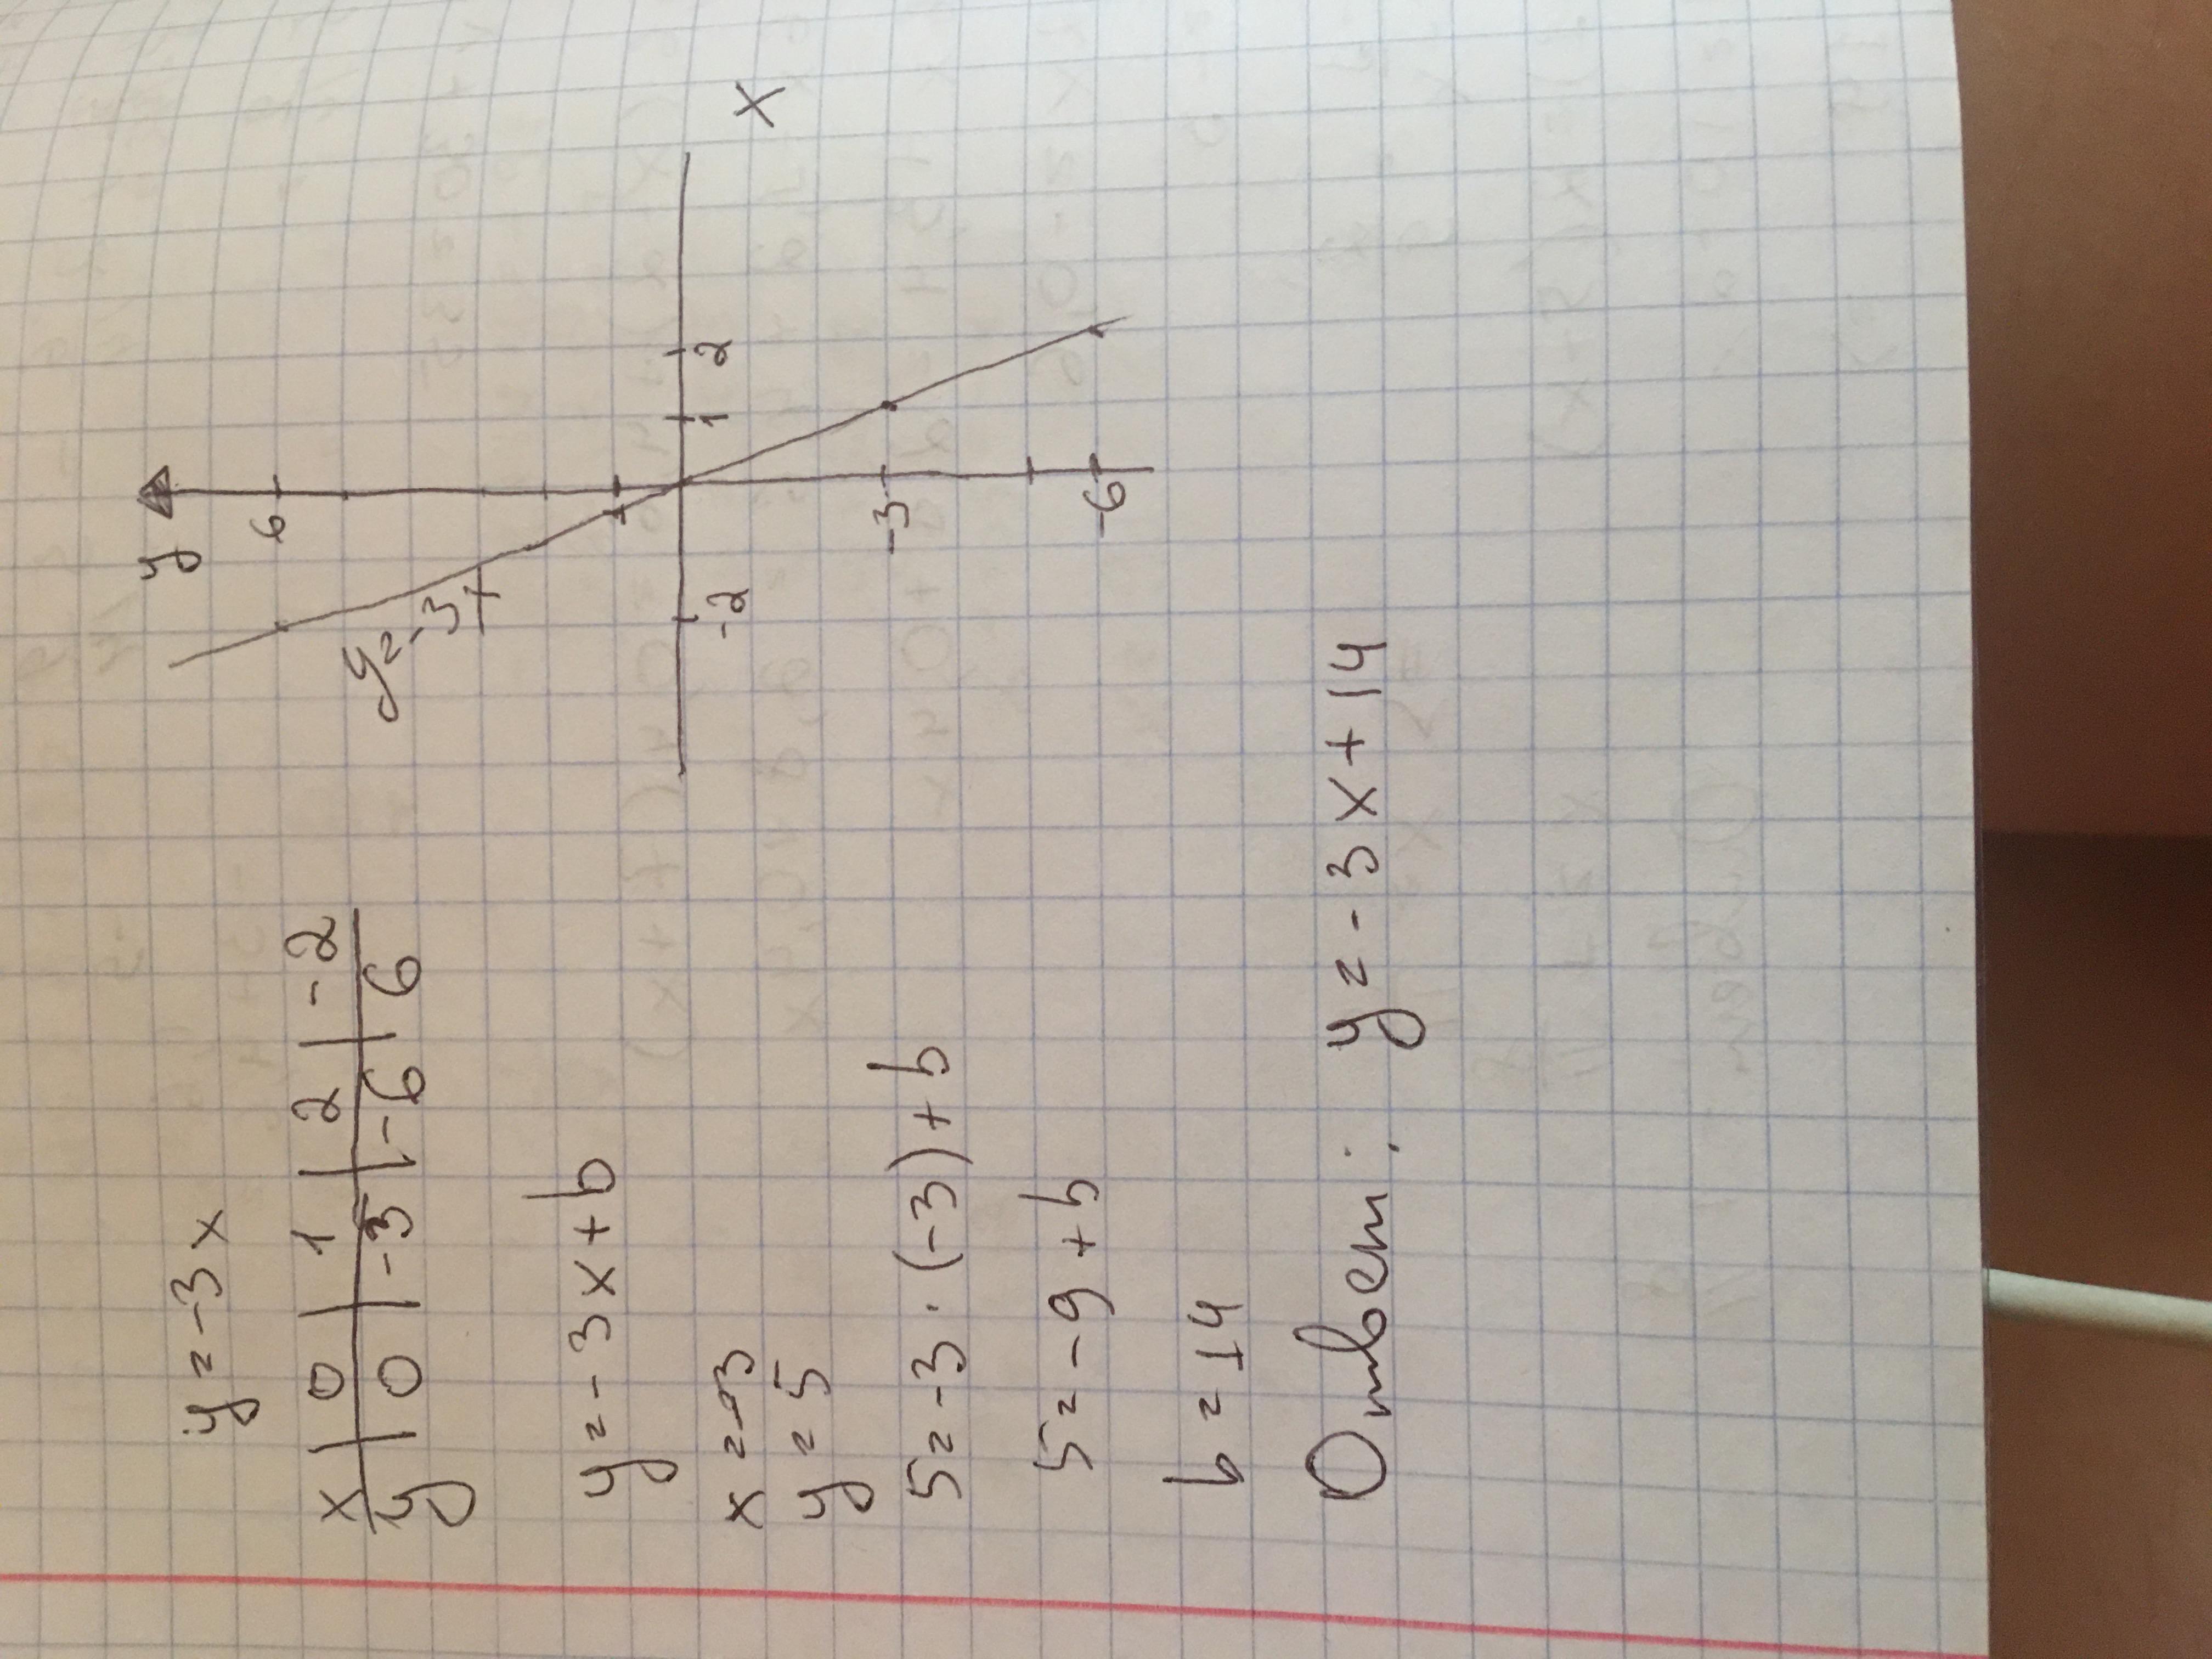 y = -3x
x | 0 | 1 | 2 | -2
y | 0 | -3 | -6 | 6
y = -3x + b
x = -3
y = 5
5 = -3 · (-3) + b
5 = -9 + b
b = 14
Ответ: y = -3x + 14
y
6
y = -3x
x
-2
1
2
-3
-6